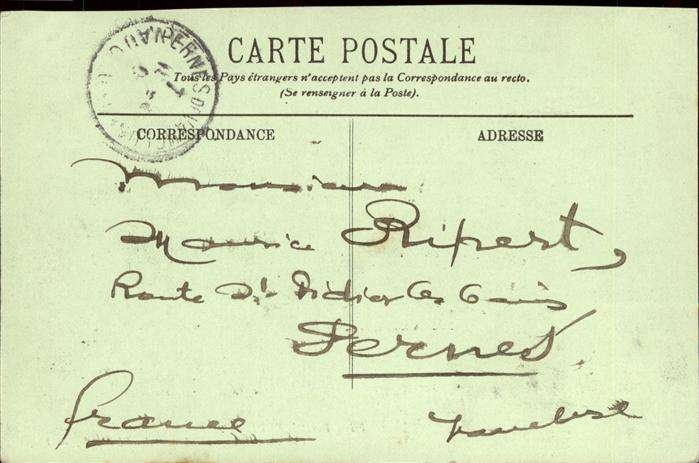 CARTE POSTALE
Tous les Pays étrangers n'acceptent pas la Correspondance au recto.
(Se renseigner à la Poste).
CORRESPONDANCE
ADRESSE
Monsieur
Maurice Ripert,
Route St Didier les Bains
Pernes
France Vaucluse